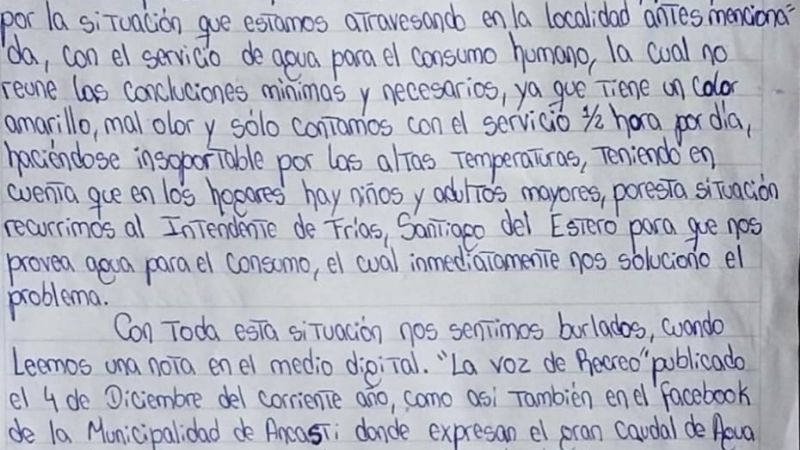 por la situación que estamos atravesando en la localidad antes menciona-
da, con el servicio de agua para el consumo humano, la cual no
reune las concluciones mínimas y necesarios, ya que tiene un color
amarillo, mal olor y sólo contamos con el servicio 1/2 hora por día,
haciéndose insoportable por las altas temperaturas, teniendo en
cuenta que en los hogares hay niños y adultos mayores, por esta situación
recurrimos al Intendente de Frías, Santiago del Estero para que nos
provea agua para el consumo, el cual inmediatamente nos soluciono el
problema.
Con toda esta situación nos sentimos burlados, cuando
Leemos una nota en el medio digital. "La voz de Recreo" publicado
el 4 de Diciembre del corriente año, como asi también en el facebook
de la Municipalidad de Ancasti donde expresan el gran caudal de Agua